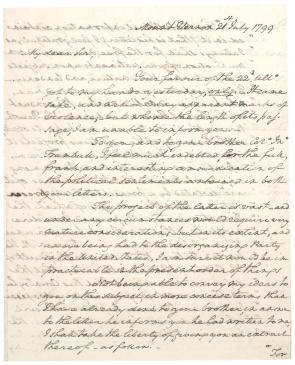 Mount Vernon 21st July 1799
My dear Sir,
Your favour of the 22d ulto
got to my hands yesterday, only. It came
safe, and without any apparent marks of
violence, but whence the length of its pas-
sage, I am unable to inform you.
To you, and to your brother Colo Jno
Trumbull, I feel much indebted for the full,
frank, and interesting communication of
the political sentiments contained in both
your letters.
The project of the latter is vast—and
under any circumstances would require very
mature consideration; but in its extent, and
an eye being had to the disorganizing Party
in the United States, I am sure it would be im-
practicable in the present order of things.
Not being able to convey my ideas to
you, on this subject, in more concise terms than
I have already done to your brother, in answer
to the letter he informs you he had written to me
I shall take the liberty of giving you an extract
thereof—as follow.
"For